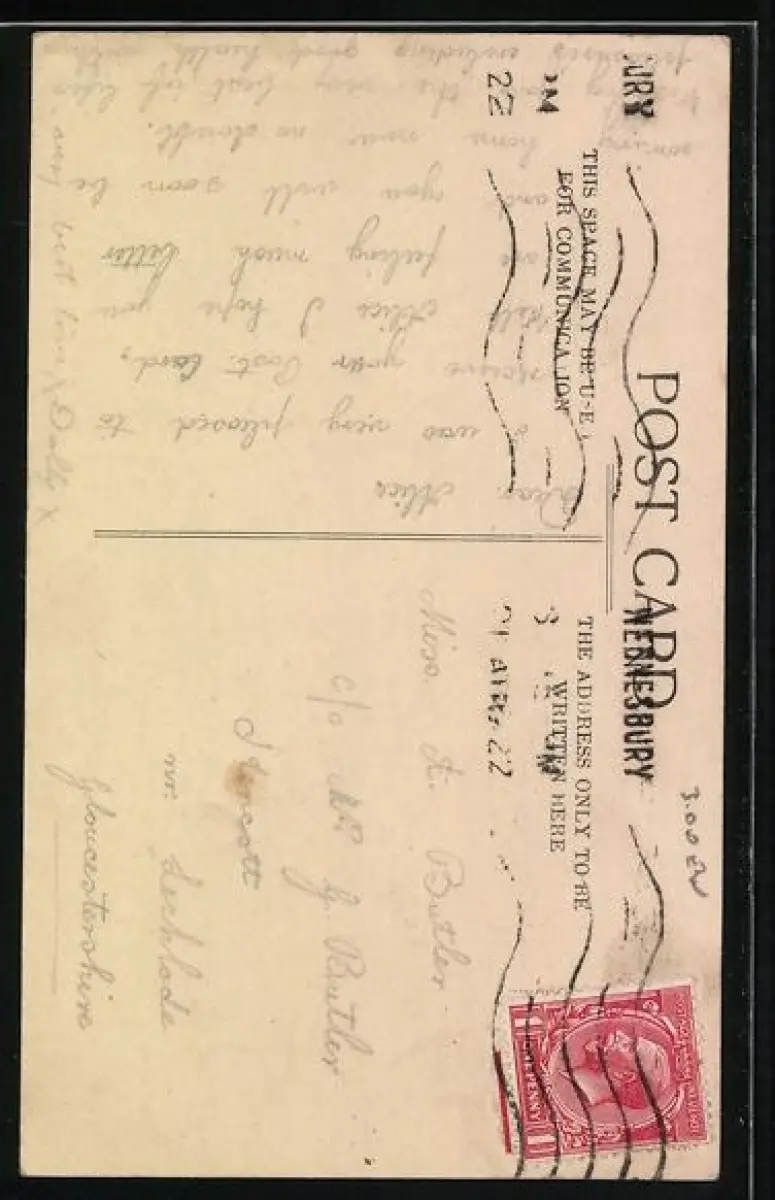 POST CARD
THIS SPACE MAY BE USE
FOR COMMUNICA ION
THE ADDRESS ONLY TO BE
WRITTEN HERE
URY
PM
22
WEDNESBURY
21 APR 22
3.00 EN
ONE PENNY
Dear Alice
I was very pleased to
receive your Post Card,
Well Alice I hope you
are feeling much better
and you will soon be
coming home now no doubt.
the very best of
pleasures including good health
very best love, Dolly X
Miss. A. Butler
c/o Mr G. Butler
nr. Lechlade
Gloucestershire